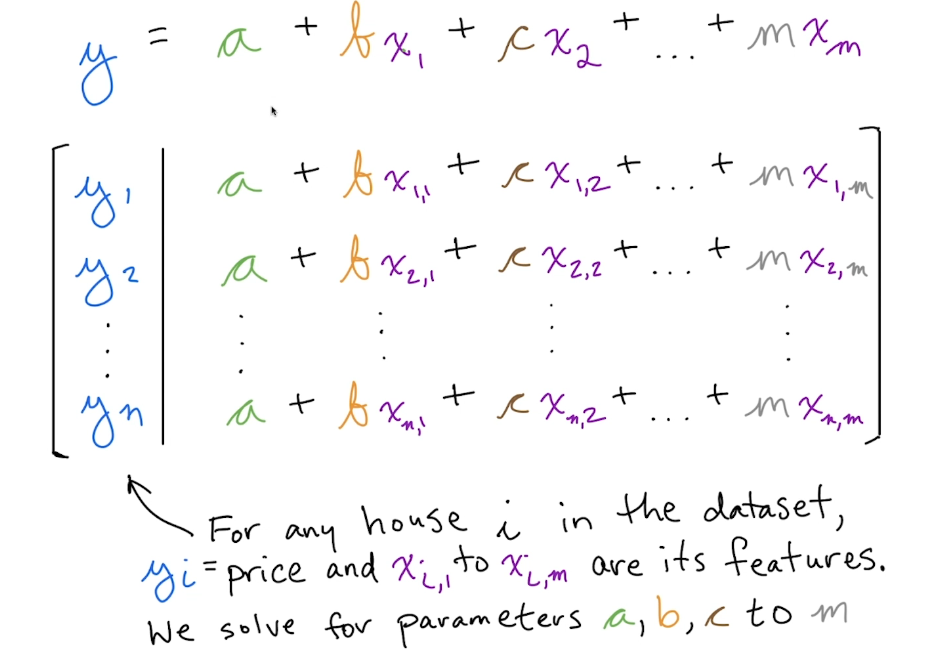 y = a + b x₁ + c x₂ + ... + m xₘ
y₁ | a + b x₁,₁ + c x₁,₂ + ... + m x₁,ₘ
y₂ | a + b x₂,₁ + c x₂,₂ + ... + m x₂,ₘ
⋮ ⋮ ⋮ ⋮ ⋮
yₙ | a + b xₙ,₁ + c xₙ,₂ + ... + m xₙ,ₘ
For any house i in the dataset,
yᵢ = price and xᵢ,₁ to xᵢ,ₘ are its features.
We solve for parameters a, b, c to m